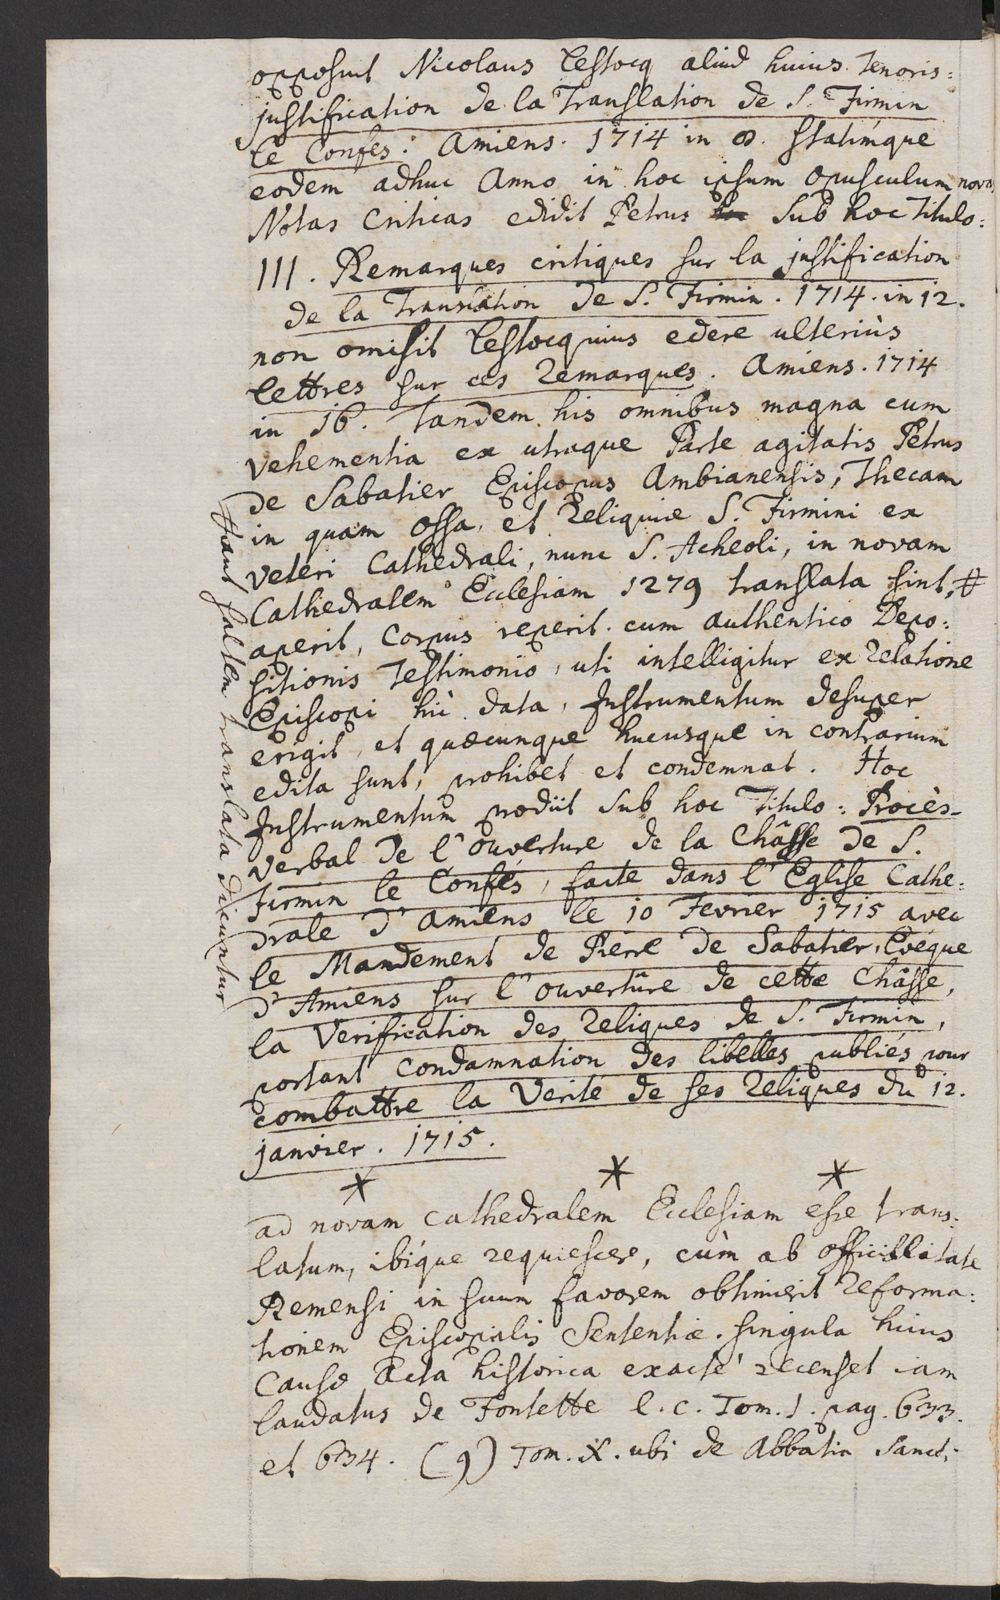 opposuit Nicolaus Lestocq aliud huius Tenoris:
justification de la Translation de S. Firmin
le Confès: Amiens. 1714 in 8. statimque
eodem adhuc Anno in hoc ipsum Opusculum novas
Notas Criticas edidit Petrus sub hoc Titulo:
III. Remarques critiques sur la justification
de la Translation de S. Firmin. 1714. in 12.
non omisit Lestocquius edere ulteriùs
lettres sur ces Remarques. Amiens. 1714
in 16. Tandem his omnibus magna cum
vehementia ex utraque Parte agitatis Petrus
de Sabatier Episcopus Ambianensis, Thecam
in quam Ossa, et Reliquiæ S. Firmini ex
veteri Cathedrali, nunc S. Acheoli, in novam
Cathedralem Ecclesiam 1279 translata sint, #
aperit, Corpus reperit cum authentico Depo:
sitionis Testimonio, uti intelligitur ex Relatione
Episcopi hîc data, Instrumentum desuper
erigit, et quæcunque hucusque in contrarium
edita sunt, prohibet et condemnat. Hoc
Instrumentum prodiit sub hoc Titulo: Procès-
verbal de l'ouverture de la Châsse de S.
Firmin le Confés, faite dans l'Eglise Cathe:
drale d'Amiens le 10 Fevrier 1715 avec
le Mandement de Pierre de Sabatier, Evéque
d'Amiens sur l'ouverture de cette Châsse,
la Verification des Reliques de S. Firmin,
portant condamnation des libelles publiés pour
combattre la Verite de ses Reliques du 12.
janvier. 1715.
* * *
ad novam cathedralem Ecclesiam esse trans:
latum, ibique requiescere, cùm ab officialitate
Remensi in suum favorem obtinuerit reforma:
tionem Episcopalis Sententiæ. Singula huius
Causæ Acta historica exacte recenset iam
laudatus de Fontette l. c. Tom. 1. pag. 633.
et 634. (9) Tom. X. ubi de Abbatia Sanct:
# aut saltem translata dicuntur